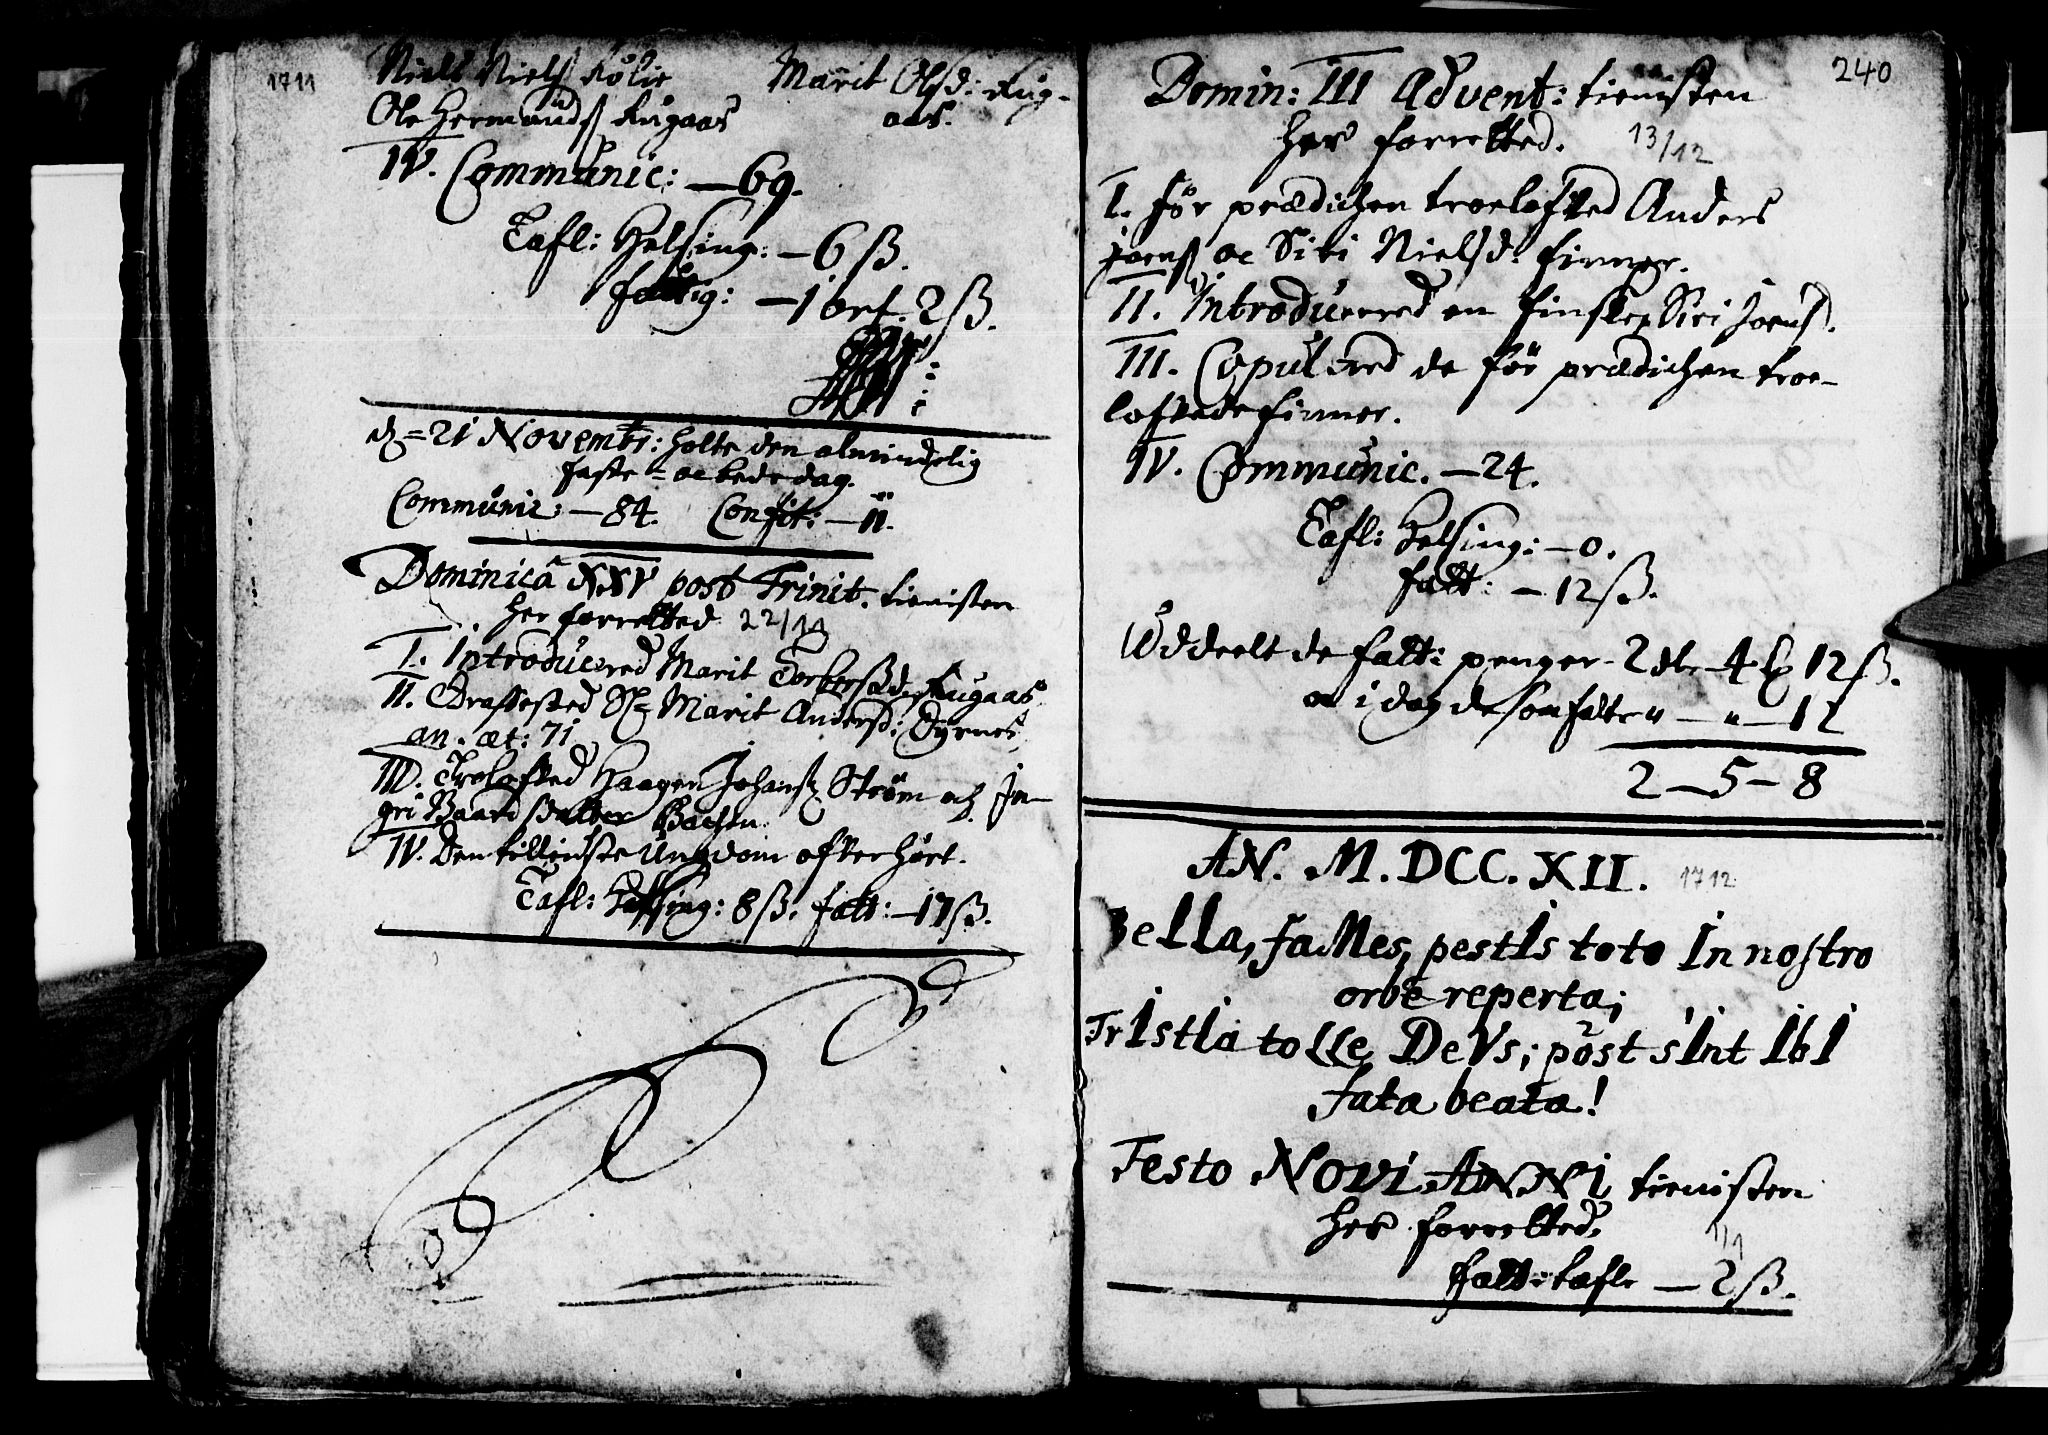 1711
Niels Nielß Kölie Marit Olsd: Rug-
Ole Hermundß Rugaas aas.
IV. Communic: — 69.
Tafl: Helsing: — 6 ß.
fattig: — 1 ort. 2 ß.
d. = 21 Novembr: holte den almindelig
faste = oc bededag.
Communic: — 84. Confit: — 11.
Dominica XXV post Trinit. tienisten
her forretted 22/11
I. Introducered Marit Rugaas.
II. Graffested Marit Andersd: Dyrnes
an. æt: 71
III. Trolofted Haagen Johansß Ström och In-
gri Baardßdatter Bachen.
IV. Den Ungdom offterhört.
Tafl: Helsing: 8 ß. fatt: — 17 ß.
240
Domin: III Advent: tienisten
her forretted. 13/12
I. för prædichen troelofted Anders
Joenß oc Siri Nielsd: finner.
II. Introducered en finske, Siri Joensd.
III. Copulered de för prædichen troe-
loftede finner.
IV. Communic. — 24.
Tafl: Helsing: — 0.
fatt: — 12 ß.
Uddeelt de fatt: penger - 2 dlr - 4 12 ß.
oc i dag de som fatt: " — " — 12
2 — 5 — 8
AN. M. DCC. XII. 1712
BeLLa, faMes, pestIs toto In nostro
orbe reperta;
TrIstIa toLLe DeVs; post sInt IbI
fata beata!
Festo NOVI ANNI tienisten
her forretted. 1/1
fatt: tafl: — 2 ß.